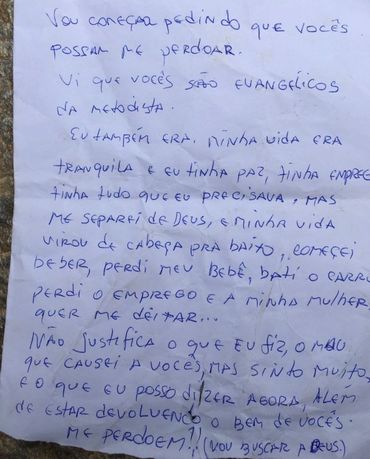 VOU COMEÇAR PEDINDO QUE VOCÊS
POSSAM ME PERDOAR.
VI QUE VOCÊS SÃO EVANGÉLICOS
DA METODISTA.
EU TAMBÉM ERA. MINHA VIDA ERA
TRANQUILA E EU TINHA PAZ, TINHA EMPRE
TINHA TUDO QUE EU PRECISAVA, MAS
ME SEPAREI DE DEUS, E MINHA VIDA
VIROU DE CABEÇA PRA BAIXO, COMEÇEI
BEBER, PERDI MEU BEBÊ, BATI O CARRO
PERDI O EMPREGO E A MINHA MULHER
QUER ME DEITAR...
NÃO JUSTIFICA O QUE EU FIZ, O MAU
QUE CAUSEI A VOCÊS, MAS SINTO MUITO,
E O QUE EU POSSO DIZER AGORA, ALÉM
DE ESTAR DEVOLUENCO O BEM DE VOCÊS.
ME PERDOEM!! (VOU BUSCAR A DEUS.)